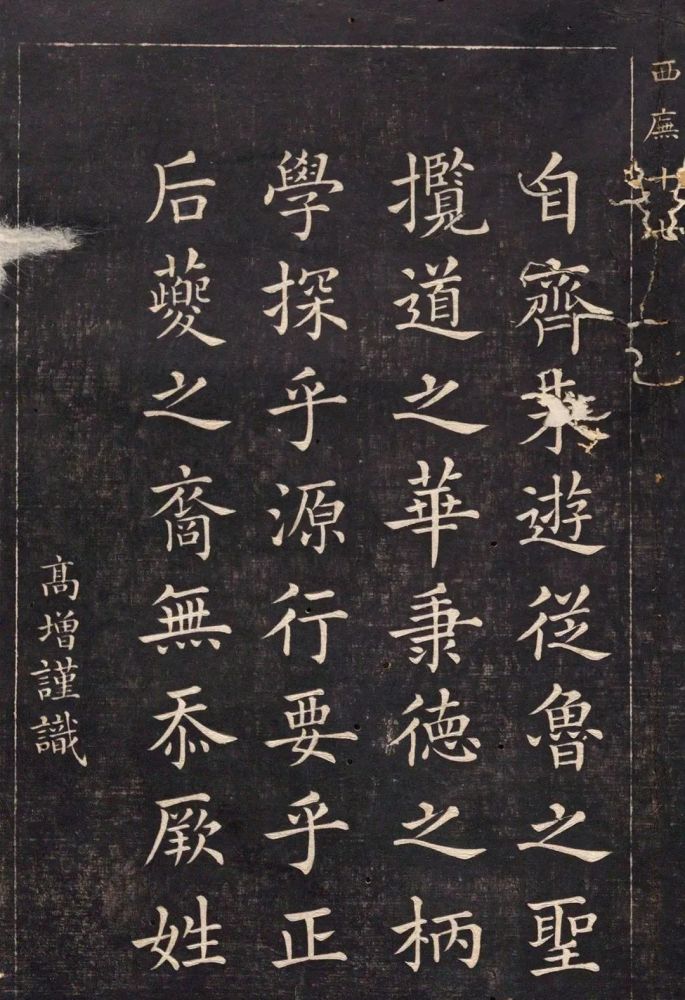 西廡
自齊来遊從魯之聖
攬道之華秉德之柄
學探乎源行要乎正
后夔之裔無忝厥姓
高增謹識